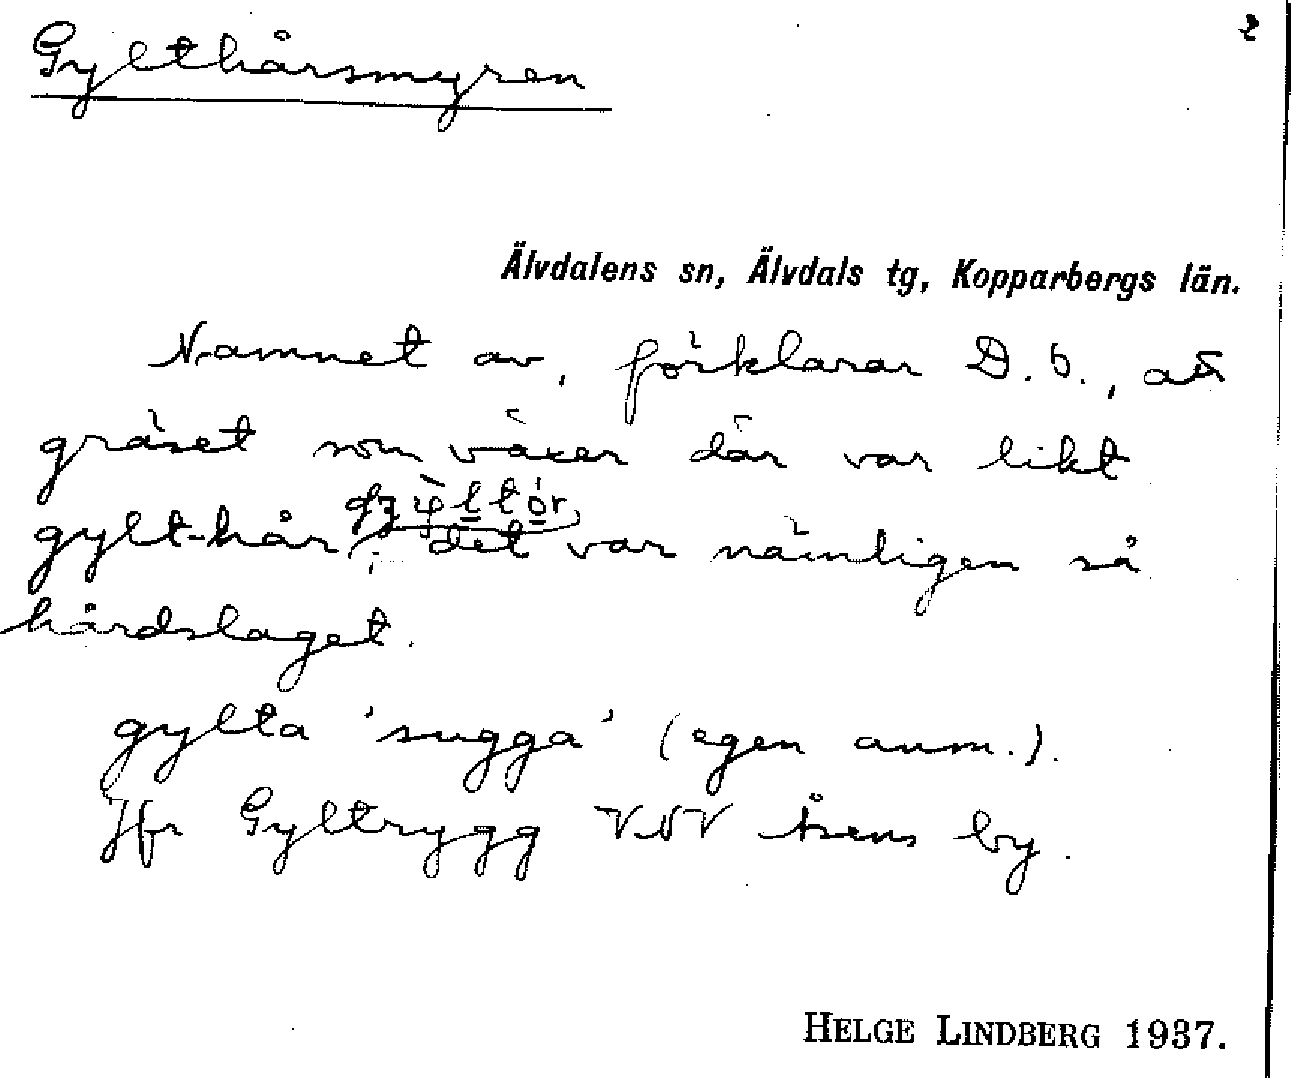 Gylthårsmyren
2
Älvdalens sn, Älvdals tg, Kopparbergs län.
Namnet av, förklarar D.b., att
gräset som växer där var likt
gylt-hår; det var nämligen så
hårdslaget.
gylta 'sugga' (egen anm.).
Jfr Gyltrygg VNV Åsens by.
HELGE LINDBERG 1937.